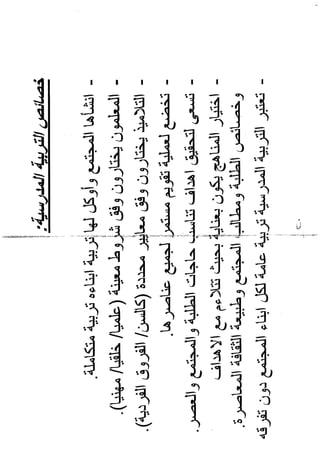 خصائص التربية المدرسية:
- انشاها المجتمع وأوكل لها تربية ابناءه تربية متكاملة.
- المعلمون يختارون وفق شروط معينة (علميا/ خلقيا/ مهنيا).
- التلاميذ يختارون وفق معايير محددة (كالسن/ الفروق الفردية).
- تخضع لعملية تقويم مستمر لجميع عناصرها.
- تسعى لتحقيق اهداف تناسب حاجات الطلبة والمجتمع والعصر.
- اختيار المناهج يكون بعناية بحيث تتلاءم مع الاهداف
وخصائص الطلبة ومطالب المجتمع وطبيعة الثقافة المعاصرة.
- تعتبر التربية المدرسية تربية عامة لكل ابناء المجتمع دون تفرقه